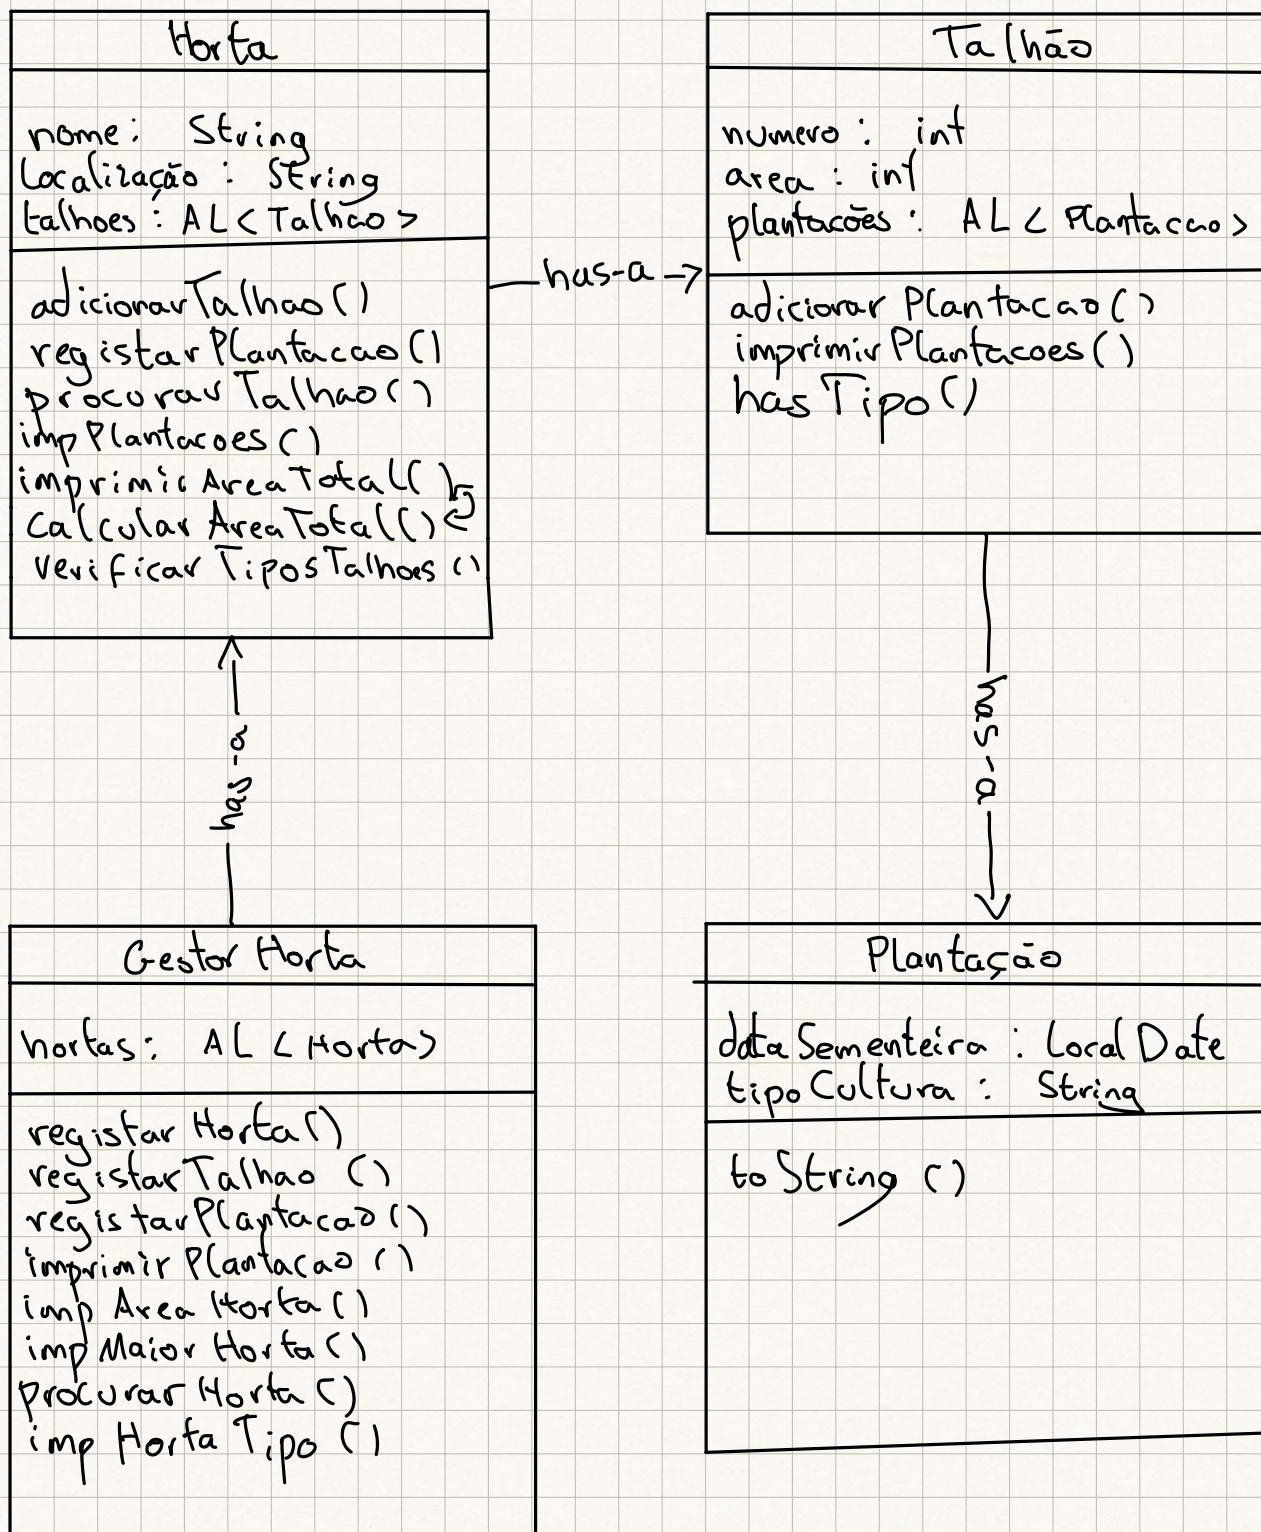 Horta
nome: String
Localização: String
talhoes: AL<Talhão>
adicionarTalhao()
registarPlantacao()
procurarTalhao()
impPlantacoes()
imprimirAreaTotal()
CalcularAreaTotal()
verificarTiposTalhoes()
has-a
Talhão
numero: int
area: int
plantacões: AL<Plantacao>
adicionarPlantacao()
imprimirPlantacoes()
hasTipo()
has-a
has-a
Gestor Horta
hortas: AL<Horta>
registarHorta()
registarTalhao()
registarPlantacao()
imprimirPlantacao()
impAreaHorta()
impMaiorHorta()
procurarHorta()
impHortaTipo()
Plantação
dataSementeira: LocalDate
tipoCultura: String
toString()